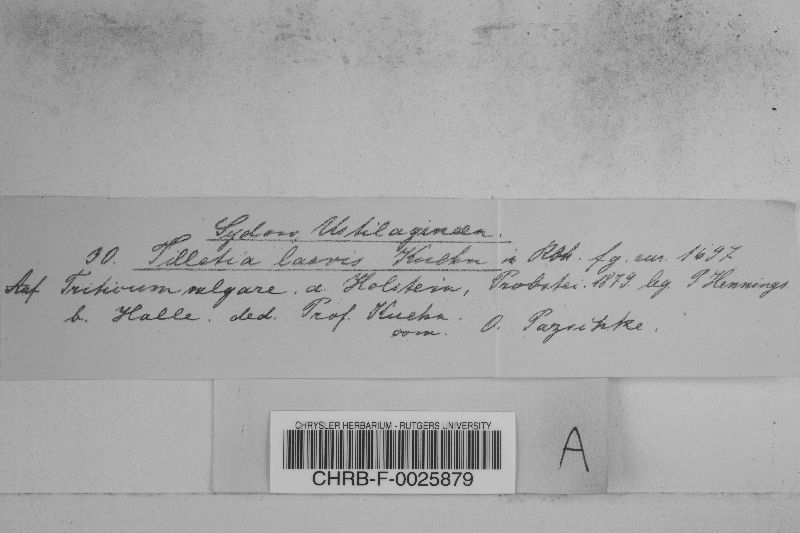 Sydow, Ustilagineen.
30. Tilletia laevis Kuehn in Rbh. fg. eur. 1697
Auf Triticum vulgare. a. Holstein, Probstei. 1879. leg. P Hennings.
b. Halle. ded. Prof. Kuehn.
com. O. Pazschke.
CHRYSLER HERBARIUM - RUTGERS UNIVERSITY
CHRB-F-0025879
A